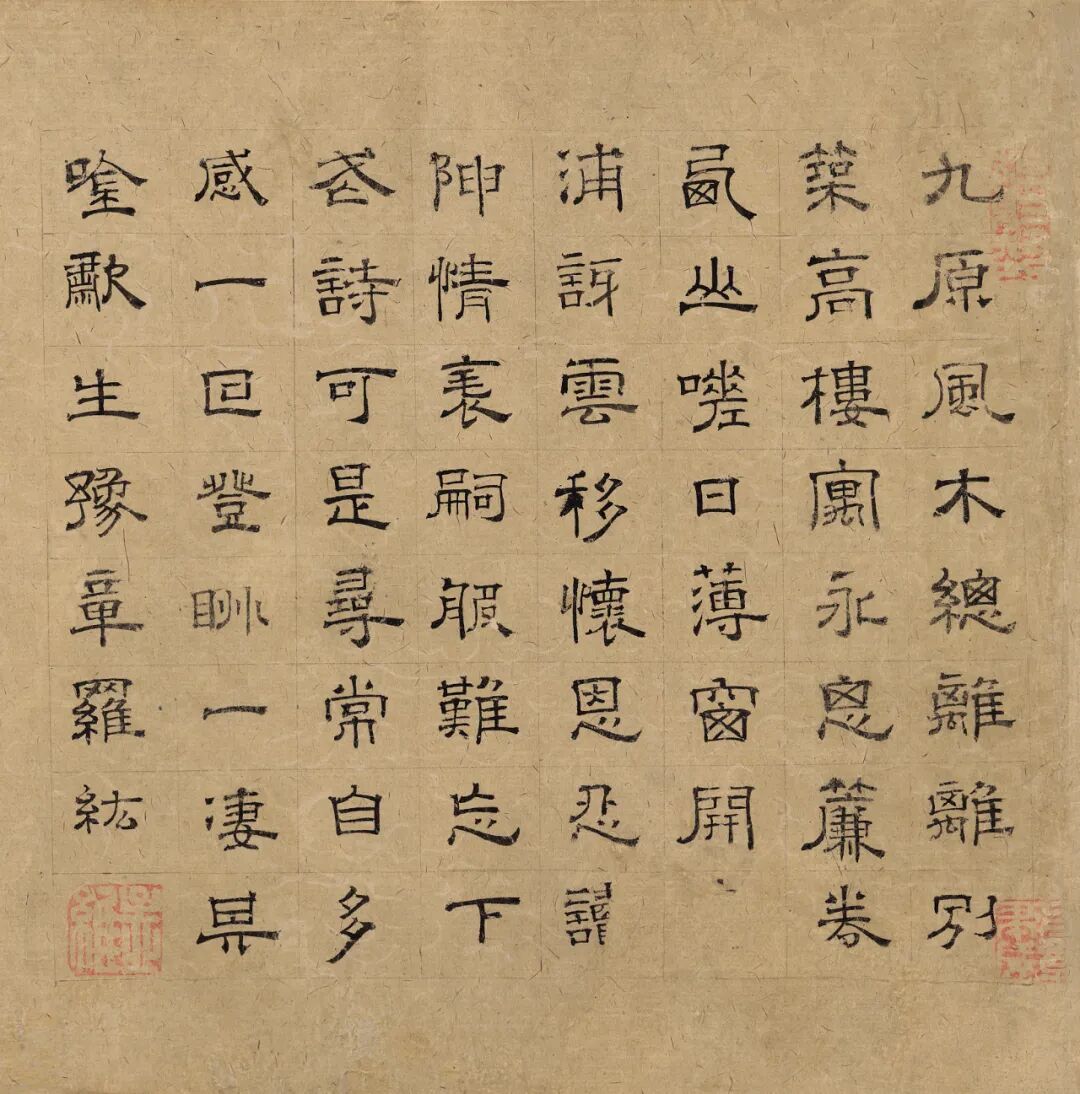 九原風木總離離別
築高樓寓永思簾卷
西山嗟日薄窗開
浦訝雲移懷恩忍讀
陳情表嗣服難忘下
武詩可是尋常自多
感一回登眺一凄其
唫歗生豫章羅紘